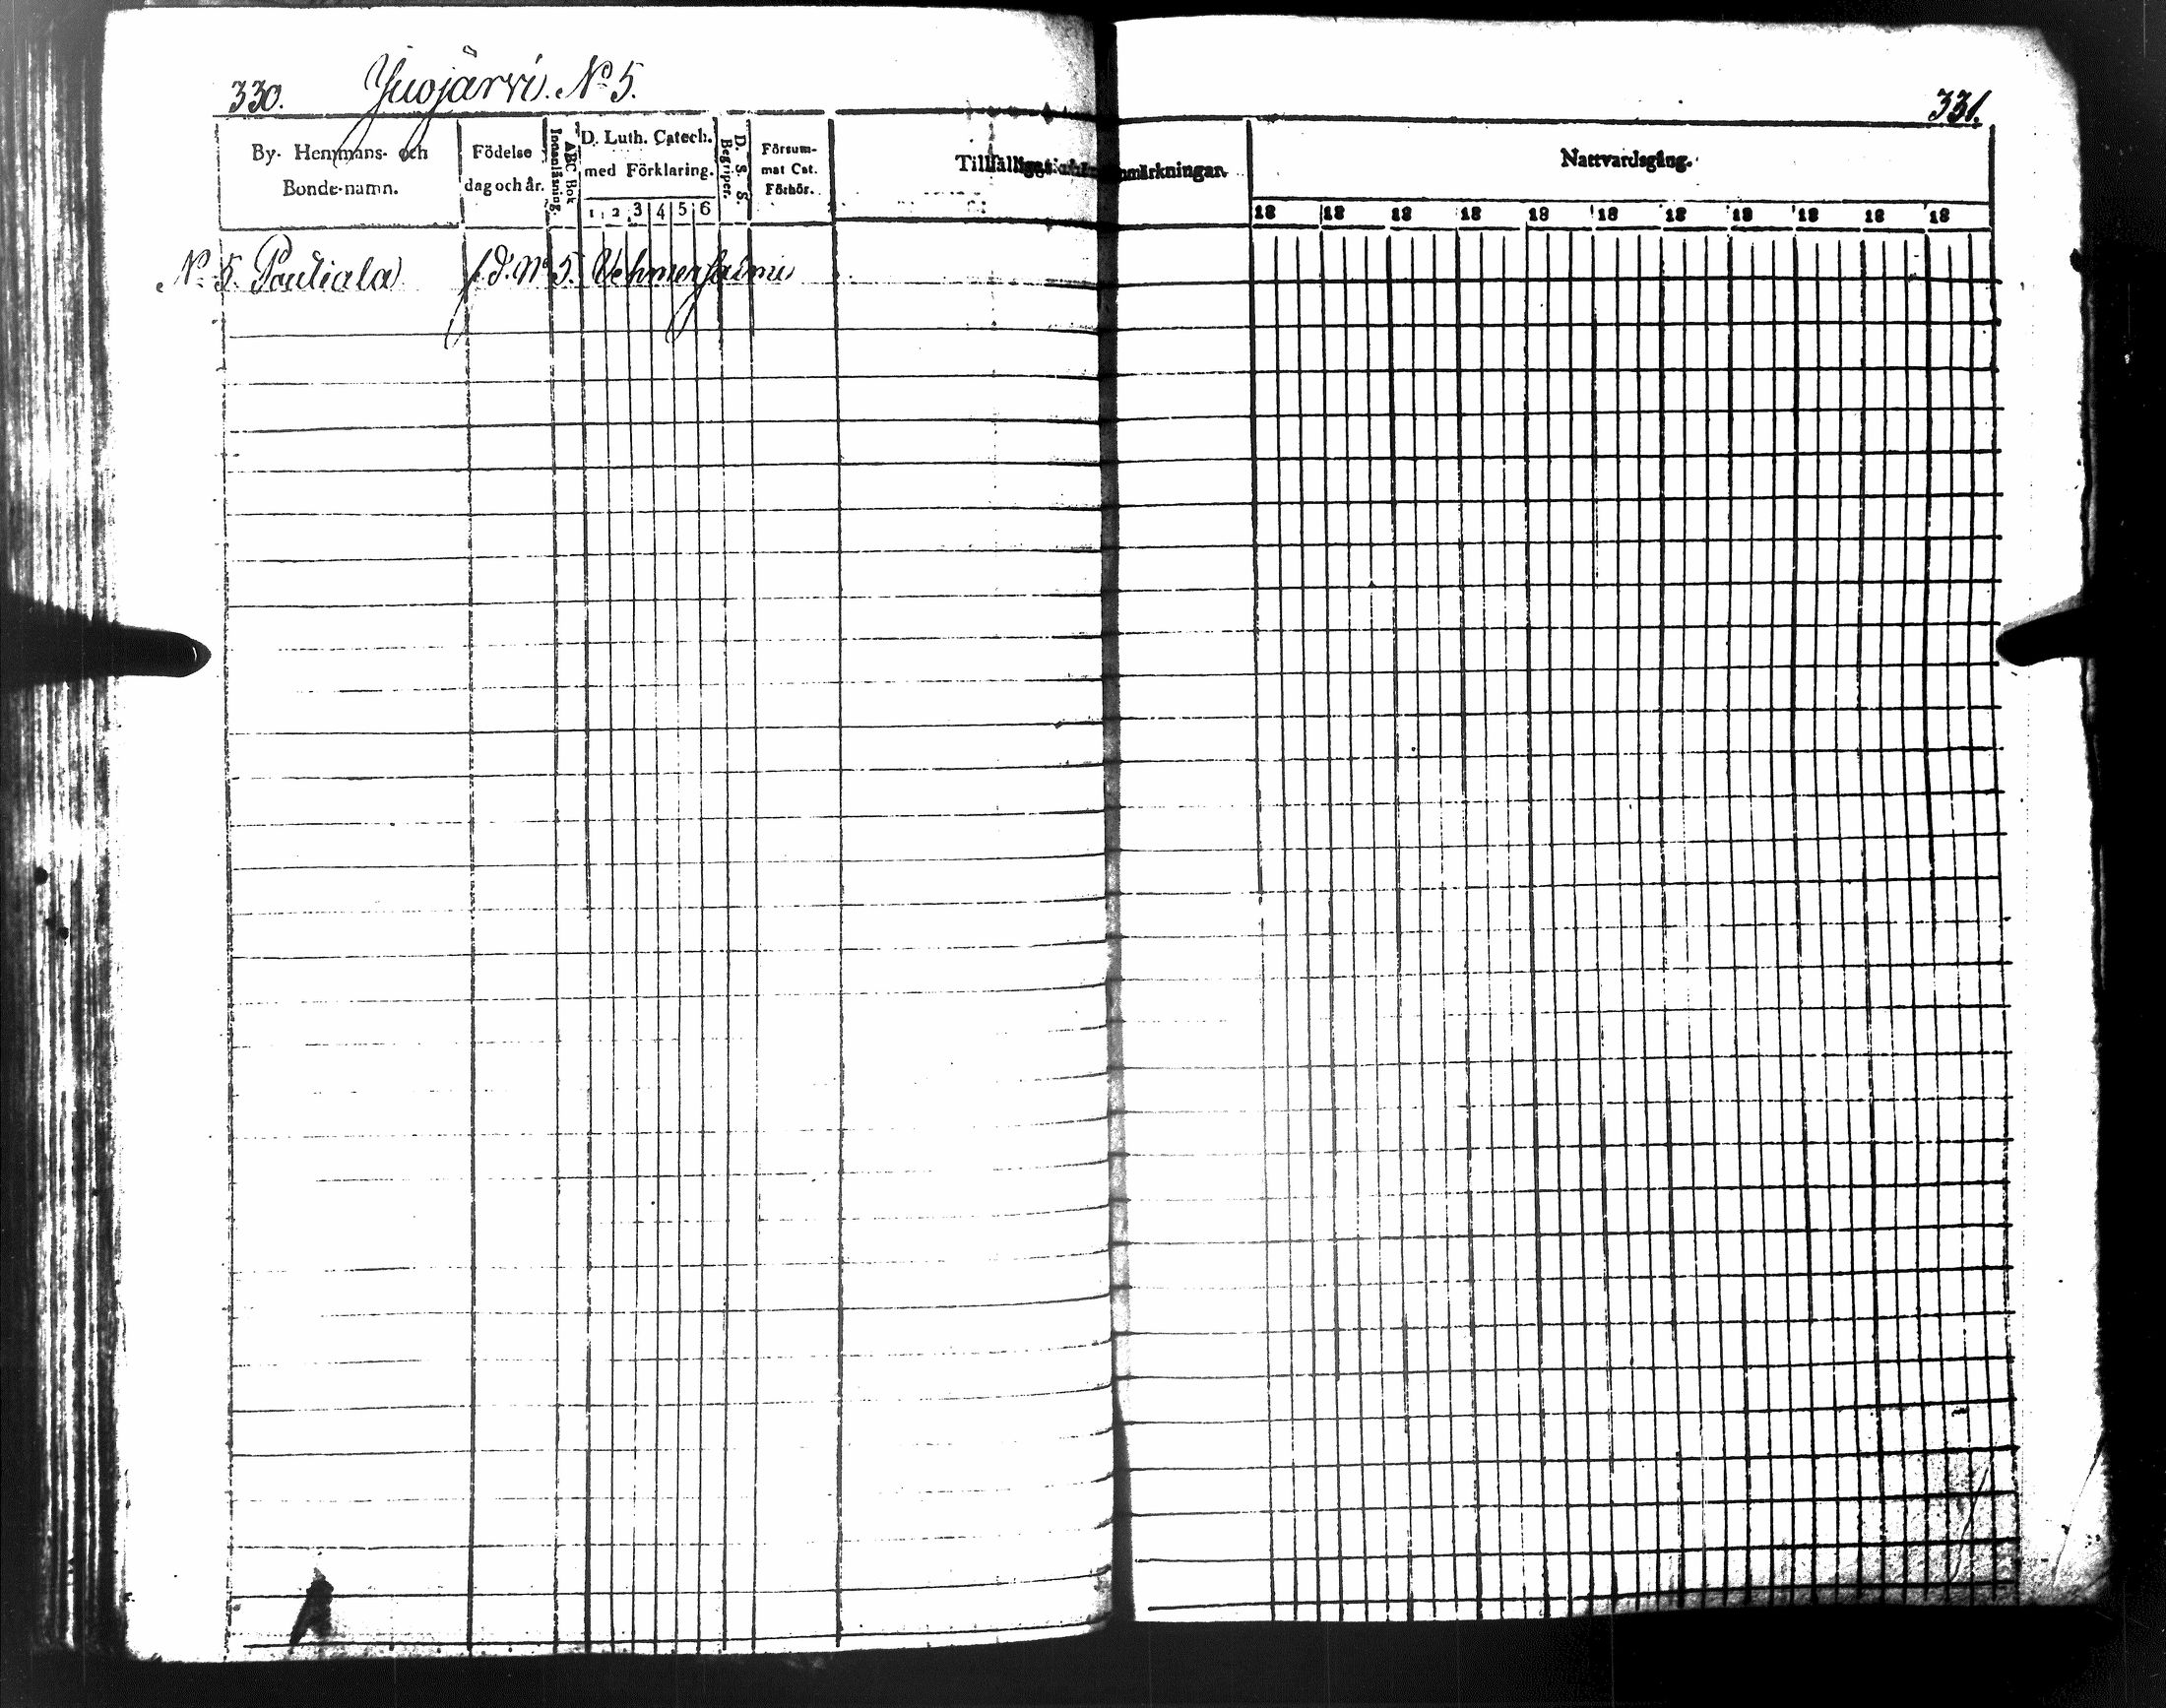 330. Juojärvi. No 5.
331.
By- Hemmans- och Bonde-namn.
Födelse dag och år.
Innanläsning.
ABC Bok
D. Luth. Catech. med Förklaring.
1 2 3 4 5 6
D. S. S. Begriper.
Försummat Cat. Förhör.
Tillfälliga anmärkningar.
Nattvardsgång.
18 18 18 18 18 18 18 18 18 18 18
No 5. Pouliala f. d. No 5. Vehmersalmi